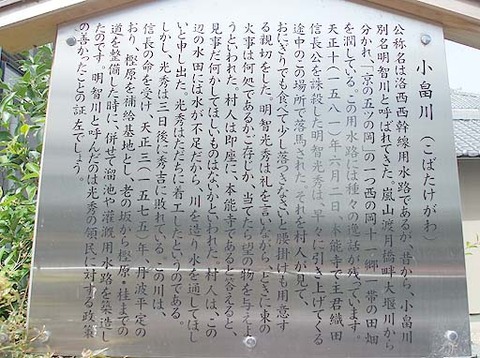 小畠川 （こばたけがわ）
公称名は洛西西幹線用水路であるが、昔から、小畠川
別名明智川と呼ばれてきた。嵐山渡月橋畔大堰川から
分かれ、京の五ツの岡の一つ西の岡十一郷一帯の田畑
を潤している。この用水路には種々の逸話が残っています。
天正十（一五八一）年六月二日、本能寺で主君織田
信長公を誅殺した明智光秀は、早々に引き上げてくる
途中のこの場所で落馬された。それを村人が見て、
おにぎりでも食べて少し落つきなさいと腰掛けも用意す
る親切をした。明智光秀は礼を言いながら、ときに東の
火事は何処であるかご存じか、当てたら望の物を与えよ
うといわれた。村人は即座に、本能寺であると答えると、
見事だ何かてほしいものはないかといわれた。村人は、この
辺の水田には水が不足だから、川を造り水を通してほし
いと申し出た。光秀はただちに着工したというのである。
しかし、光秀は三日後に秀吉に敗れている。この川は、
信長の命を受け、天正三（一五七五）年、丹波平定の
おり、樫原を補給基地とし、老の坂から樫原・桂までの
道を整備した時に、併せて溜池や灌漑用水路を築造し
たのです。明智川と呼んだのは光秀の領民に対する政策
の善かったことの証左でしょう。